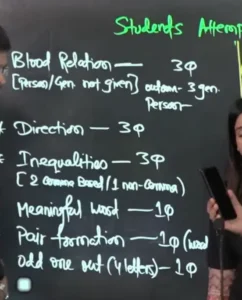 Students Attemp
Blood Relation — 3Q
[Person/Gen. not given] 3 gen.
Person
* Direction — 3Q
* Inequalities — 3Q
[2 comma Based / 1 non-comma)
Meaningful word — 1Q
Pair formation — 1Q (word
odd one out (4 letters) — 1Q